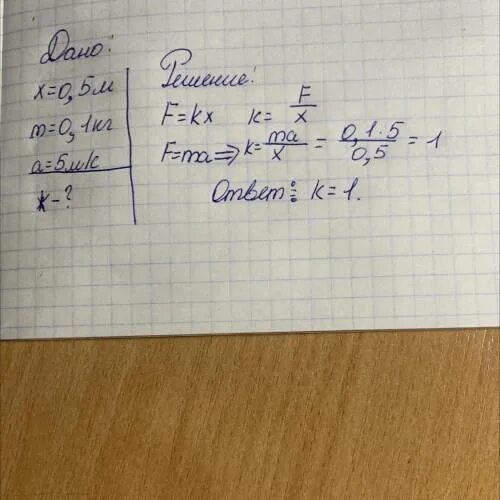 Дано:
x=0,5м
m=0,1кг
a=5м/с
k-?
Решение:
F=kx k= F/x
F=ma⇒ k= ma/x = 0,1·5/0,5 = 1
Ответ: k=1.